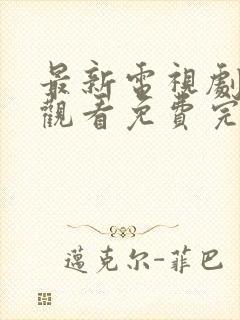 最新電視劇
觀看免費完
邁克尔-菲巴